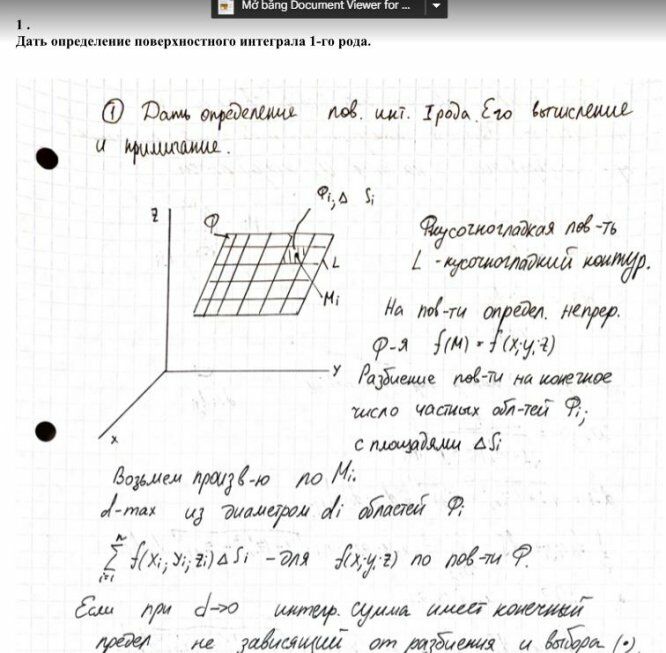 Mở bằng Document Viewer for ...
1 .
Дать определение поверхностного интеграла 1-го рода.
① Дать определение пов. инт. I рода. Его вычисление
и примичание.
Z
Φ
Φi; Δ Si
L
Mi
y
x
Φкусочногладкая пов-ть
L - кусочногладкий контур.
На пов-ти определ. непрер.
ф-я f(M) = f(x;y;z)
Разбиение пов-ти на конечное
число частных обл-тей Φi;
с площадями ΔSi
Возьмем произв-ю по Mi.
d-max из диаметром di областей Φi
n
∑ f(xi; yi; zi) Δ Si - для f(x;y;z) по пов-ти Φ.
i=1
Если при d→0 интегр. сумма имеет конечный
предел не зависящий от разбиения и выбора (•)